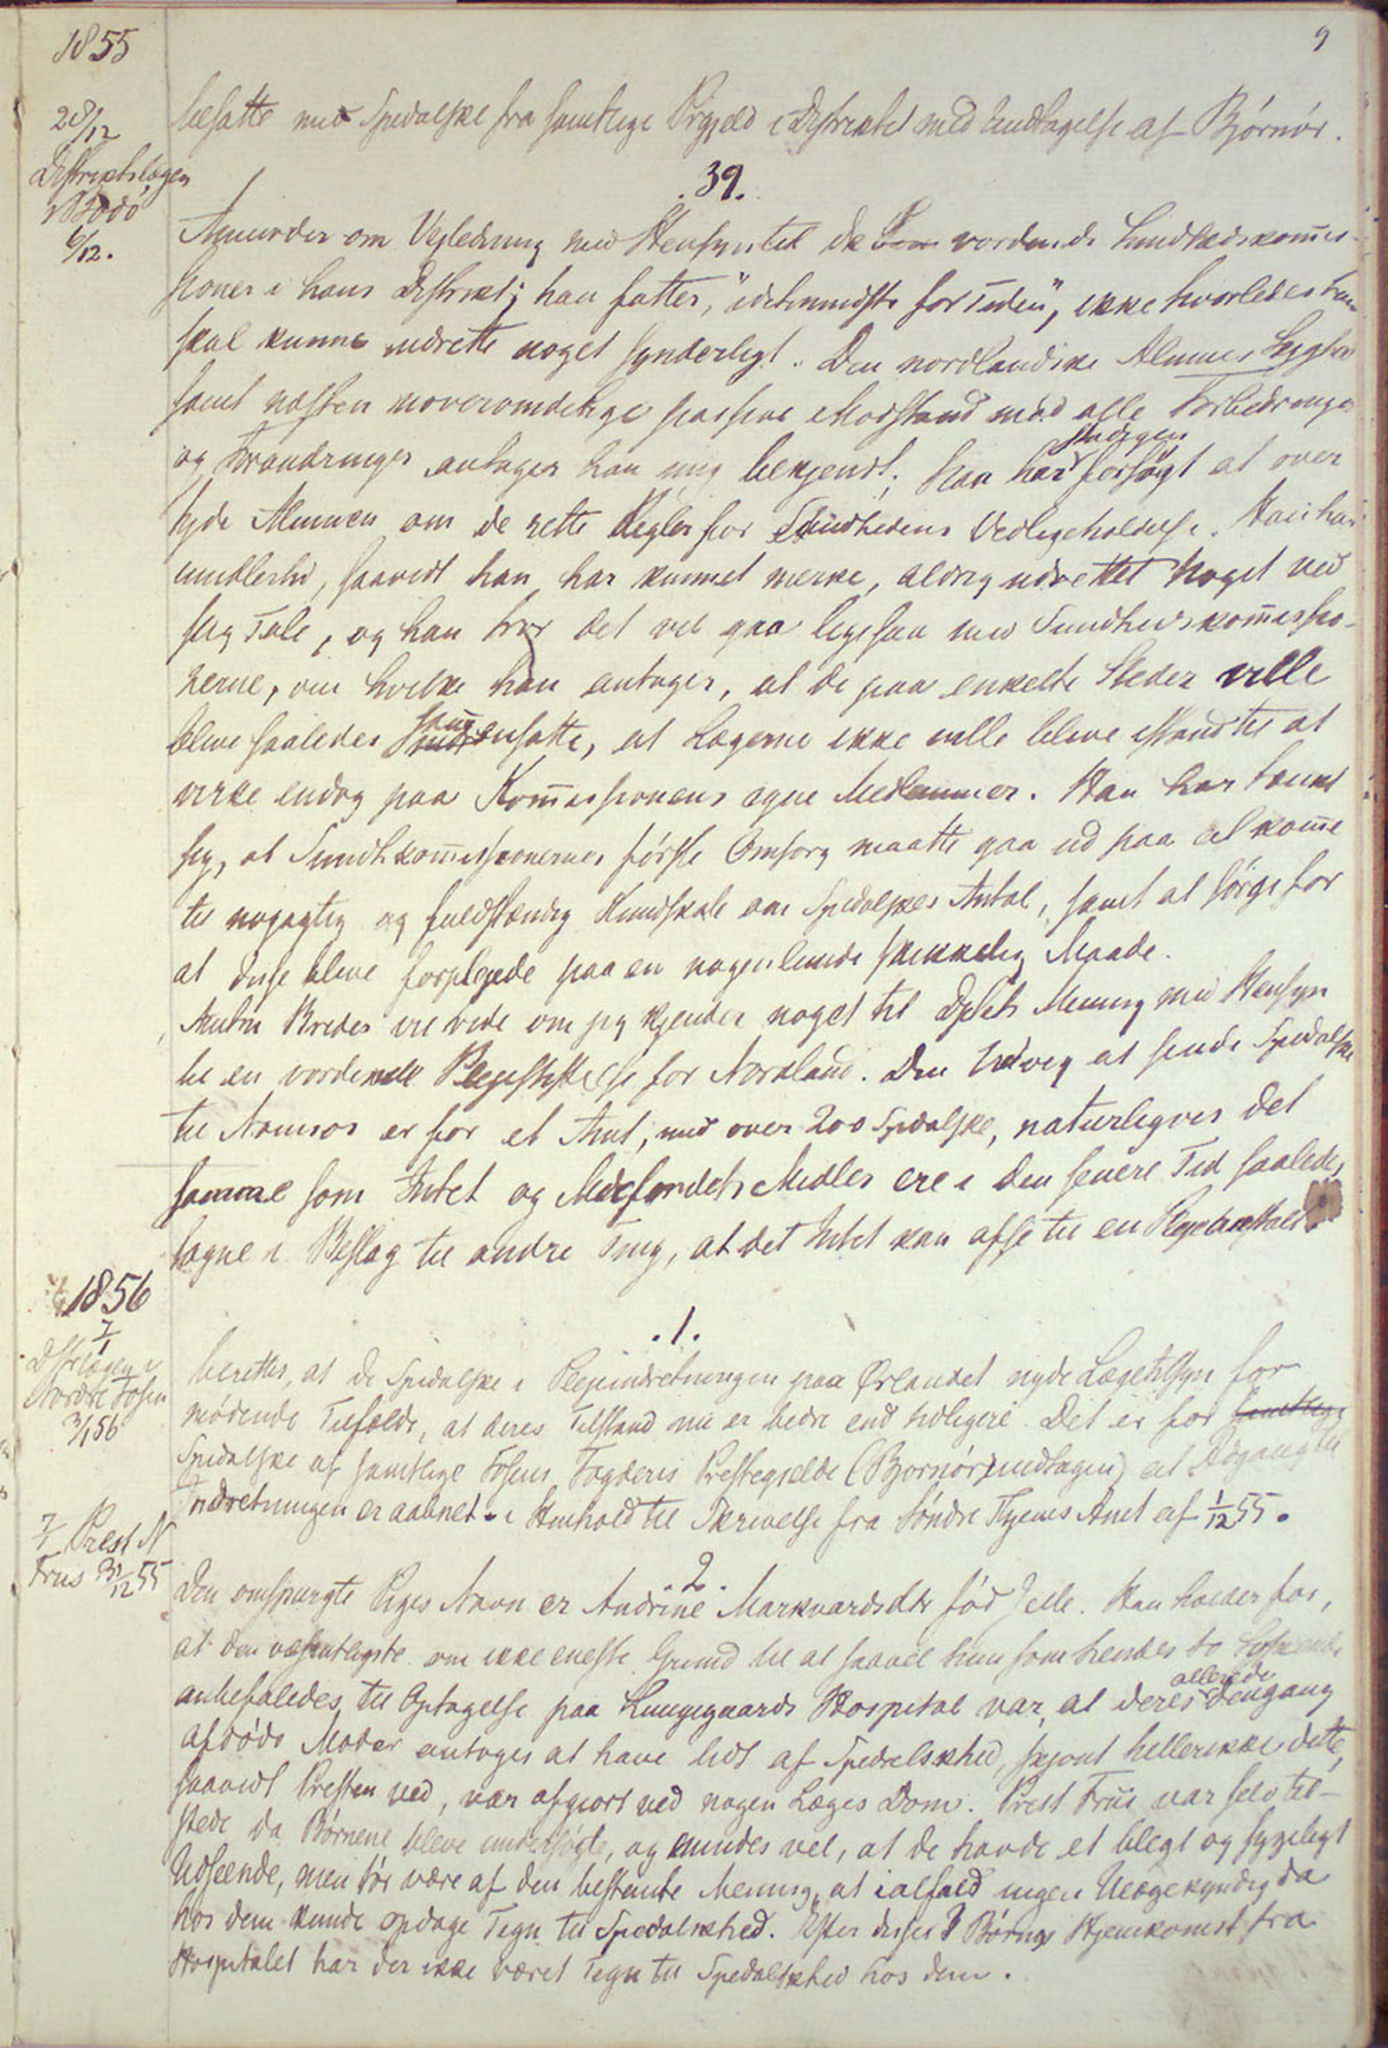 1855
9
28/12
Distriktslægen
i Bodö
6/12.
besatte med Spedalske fra samtlige Prgjeld i Distriktet med Undtagelse af Björnör.
.39.
Anmoder om Vejledning med Hensyn til de vordende Sundhedskommis-
sioner i hans Distrikt; han fatter, "idetmindste for Tiden", ikke hvorledes han
skal kunne udrette noget synderligt. Den nordlandske Almues
samt næsten uovervindelige passive Modstand mod alle Forbedringer
og Forandringer antager han mig bekjendt; han har stadigen forsögt at over
tyde Almuen om de rette Regler for Sundhedens Vedligeholdelse. Han har
imidlertid, saavidt han har kunnet merke, aldrig udrettet noget ved
sig Tale, og han tror det vil gaa ligesaa med Sundhedskommissio-
nerne, om hvilke han antager, at de paa enkelte Steder ville
blive saaledes sammensatte, at Lægerne ikke ville blive istand til at
virke endog paa Kommissionens egne Medlemmer. Han har tænkt
sig, at Sundhkommissionernes förste Omsorg maatte gaa ud paa at komme
til nøjagtig og fuldstændig Kundskab om Spedalskes Antal, samt at sörge for
at disse bleve forplejede paa en nogenlunde skikkelig Maade.
Amtm Bredes vil vide om jeg kjender noget til Dptets Mening med Hensyn
til en vordende Plejestiftelse for Nordland. Den Udvej at sende Spedalske
til Namsos er for et Amt, med over 200 Spedalske, naturligvis det
samme som Intet og Medfondets Midler ere i den senere Tid saaledes
tagne i Beslag til andre Ting, at det Intet kan afse til en Plejeanstalt
1856
7/1
Distrlægen i
Nordre Fosen
3/1 56
.1.
beretter, at de Spedalske i Plejeindretningen paa Ørlandet nyde Lægetilsyn for
mødende Tilfælde, at deres Tilstand nu er bedre end tidligere. Det er for samtlige
Spedalske af samtlige Fosens Fogderis Prestegjelde (Bjornör undtagen) at Adgang til
Indretningen er aabnet i Henhold til Skrivelse fra Söndre Thjems Amt af 1/12 55.
7/1 Prest N
Friis 31/12 55
.2.
Den omspurgte Piges Navn er Andrine Markvardsdtr född Jelle. Han holder for,
at den væsentligste om ikke eneste Grund til at saavel hun som hendes to Söskende
anbefaledes til Optagelse paa Lungegaards Hospital var, at deres allerede dengang
afdöde Moder antoges at have lidt af Spedalskhed, skjont hellerikke dette,
saavidt Presten ved, var afgjort ved nogen Læges Dom. Prest Friis var selv til-
stede da Børnene bleve undersøgte, og mindes vel, at de havde et blegt og sygeligt
Udseende, men tör være af den bestemte Mening, at ialfald ingen Ulægekyndig da
hos dem kunde opdage Tegn til Spedalskhed. Efter disse 3 Börns Hjemkomst fra
Hospitalet har der ikke været Tegn til Spedalskhed hos dem.